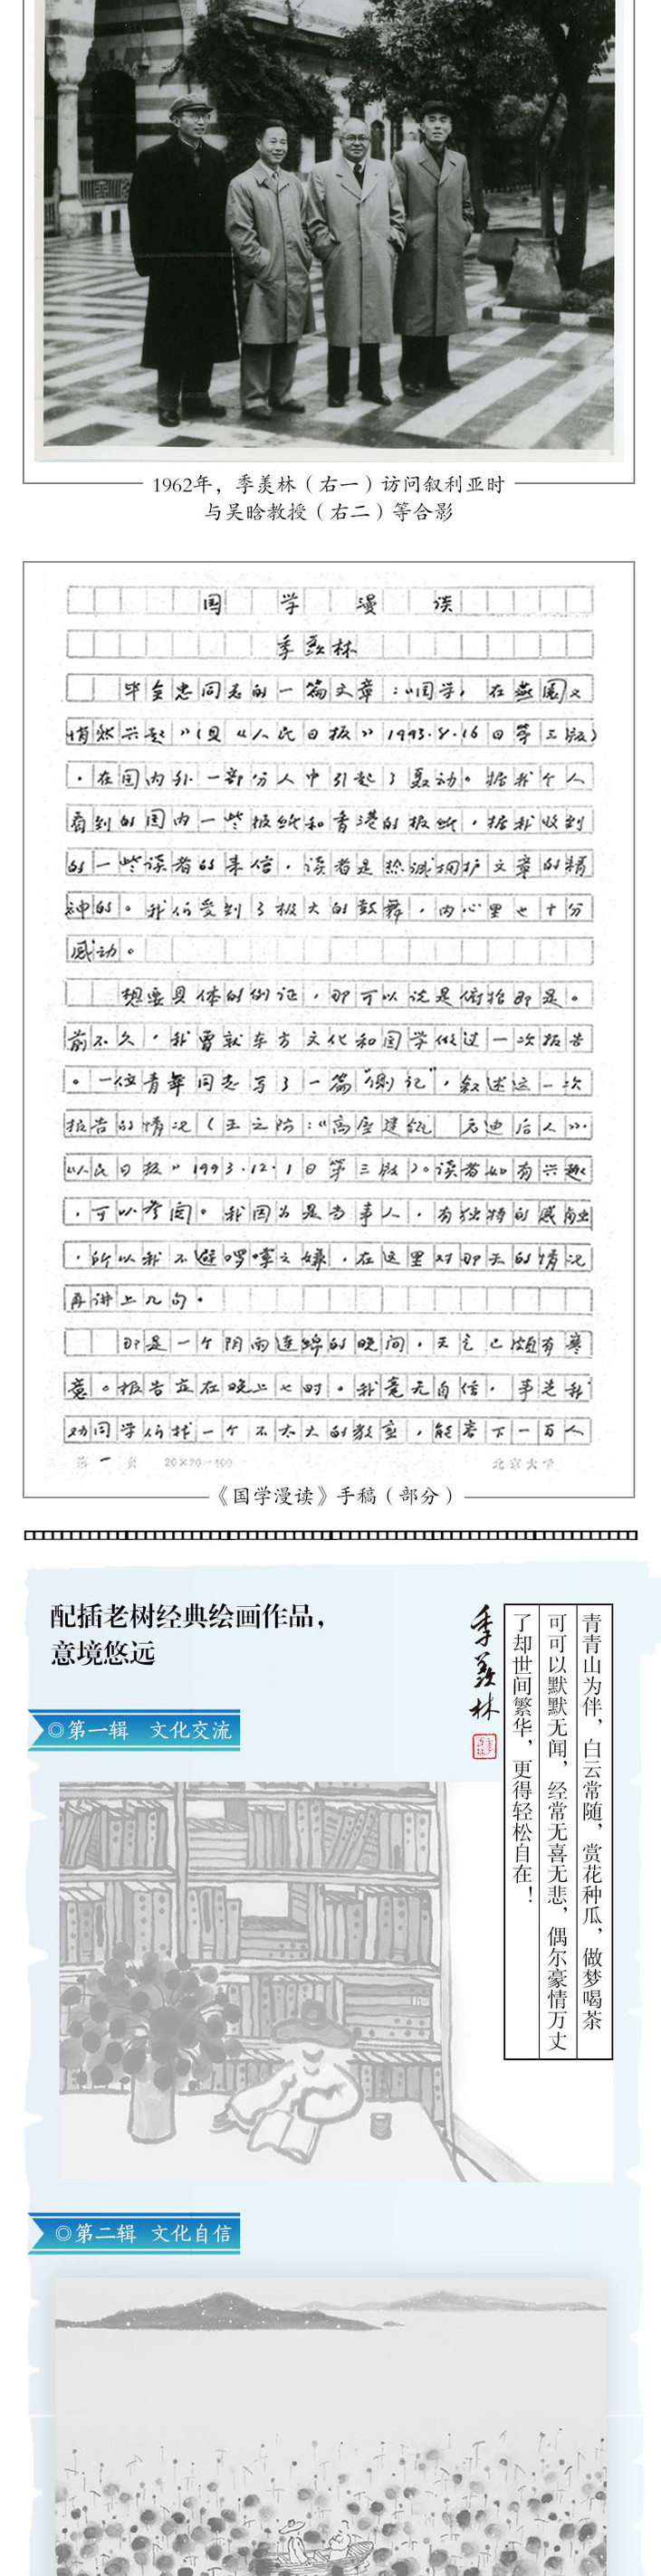 1962年，季羡林（右一）访问叙利亚时
与吴晗教授（右二）等合影
国学漫谈
季羡林
毕全忠同志的一篇文章：《国学，在燕园又
悄然兴起》（见《人民日报》1993.8.16日第三版）
，在国内外一部分人中引起了轰动。据我个人
看到的国内一些报纸和香港的报纸，据我收到
的一些读者的来信，读者是热诚拥护文章的精
神的。我们受到了极大的鼓舞，内心里也十分
感动。
想要具体的例证，那可以说是俯拾即是。
前不久，我曾就东方文化和国学做过一次报告
。一位青年同志写了一篇“侧记”，叙述这一次
报告的情况（王之昉：《高屋建瓴 启迪后人》，
《人民日报》1993.12.1日第三版）。读者如有兴趣
，可以参阅。我因为是当事人，有独特的感触
，所以我不避啰嗦之嫌，在这里对那天的情况
再讲上几句。
那是一个阴雨连绵的晚间，天气已颇有寒
意。报告定在晚上七时。我毫无自信，事先我
劝同学们找一个不太大的教室，能容下一百人
第一页 20×20=400 北京大学
《国学漫读》手稿（部分）
配插老树经典绘画作品，
意境悠远
青青山为伴，白云常随，赏花种瓜，做梦喝茶
可可以默默无闻，经常无喜无悲，偶尔豪情万丈
了却世间繁华，更得轻松自在！
季羡林
◎第一辑 文化交流
◎第二辑 文化自信